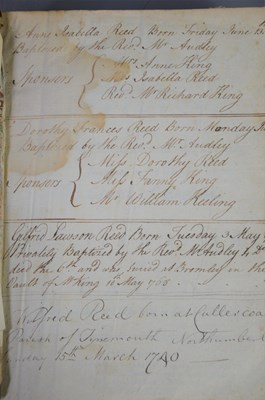 Anne Isabella Reed Born Friday June 13
Baptized by the Revd. Mr Audley
Mrs Anne King
Sponsers
Miss Isabella Reed
Revd. Mr Richard King
Dorothy Frances Reed Born Monday
Baptized by the Revd. Mr Audley
Miss Dorothy Reed
Sponsers
Miss Fanny King
Mr William Keeling
Gilfrid Lawson Reed Born Tuesday 3 May
Privately Baptized by the Revd. Mr Audley 4
dead the 6th and was buried at Bromley in the
Vault of Mr King 10 May
Reed born at Cullercoa
Parish of Tinemouth Northumberl
15th March 1740